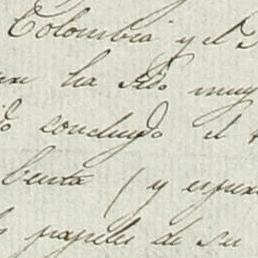 Colombia y el
ha sido muy
concluydo el
benta (y espe
papeles de su